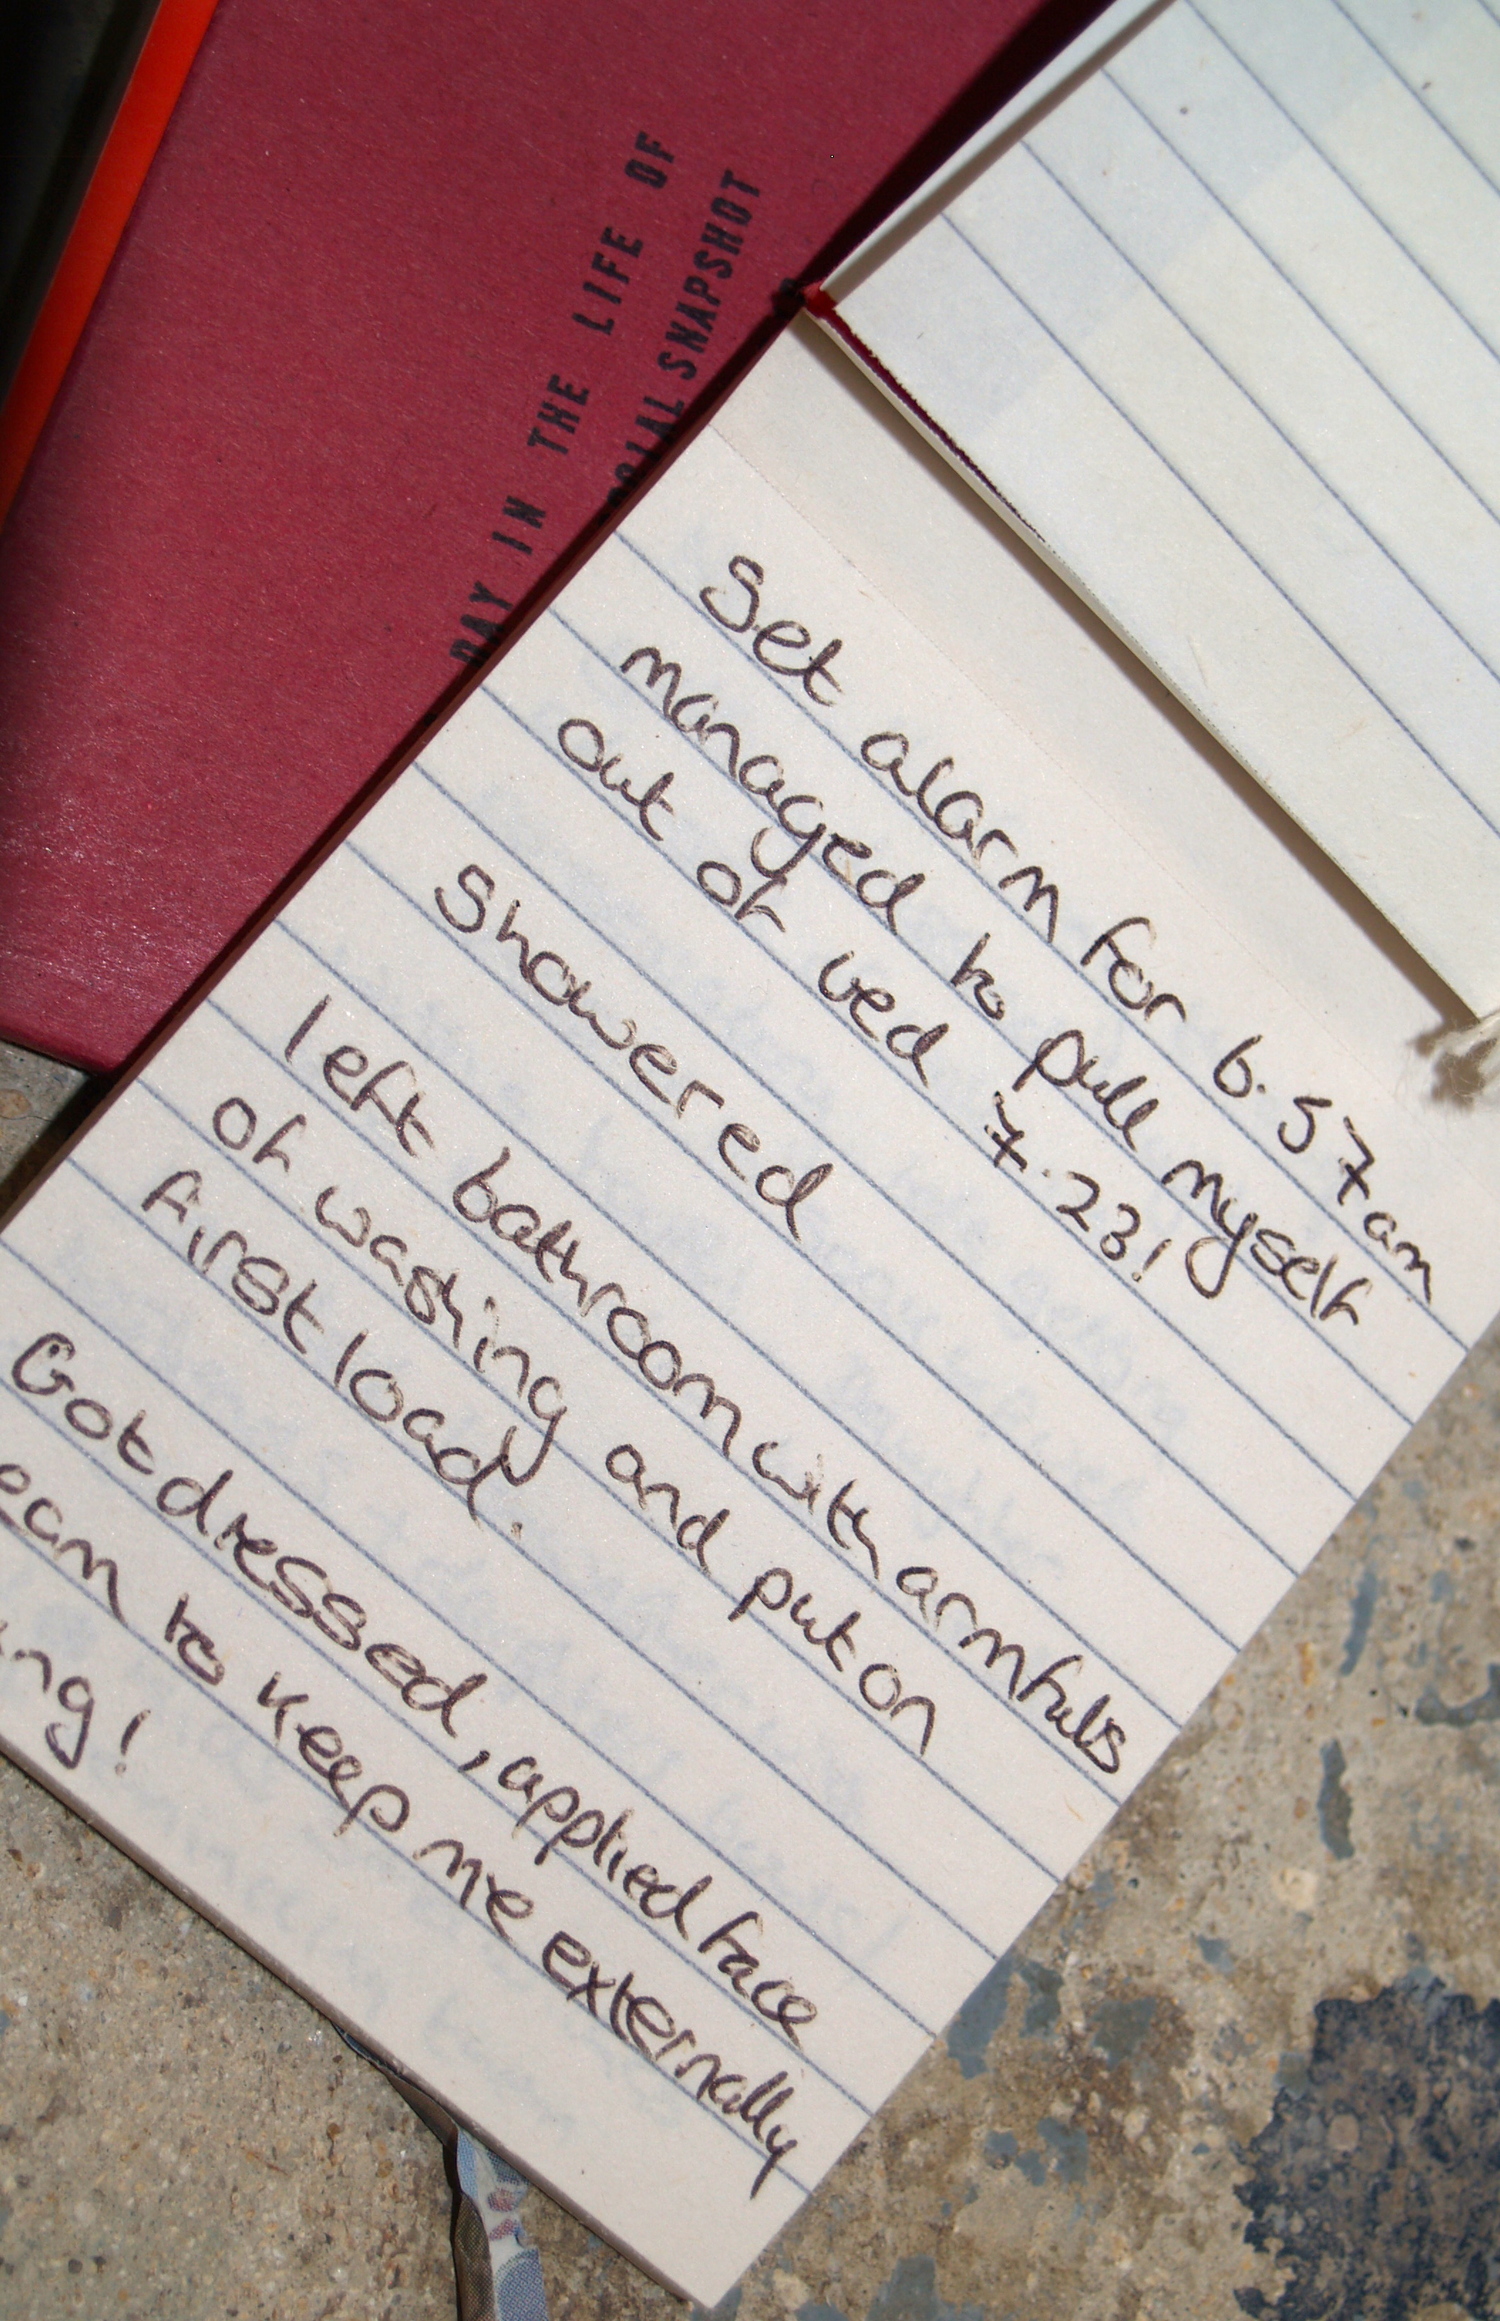 DAY IN THE LIFE OF
SOCIAL SNAPSHOT
Set alarm for 6.57am
managed to pull myself
out of bed 7.23!
Showered
left bathroom with armfuls
of washing and put on
first load.
Got dressed, applied face
to keep me externally